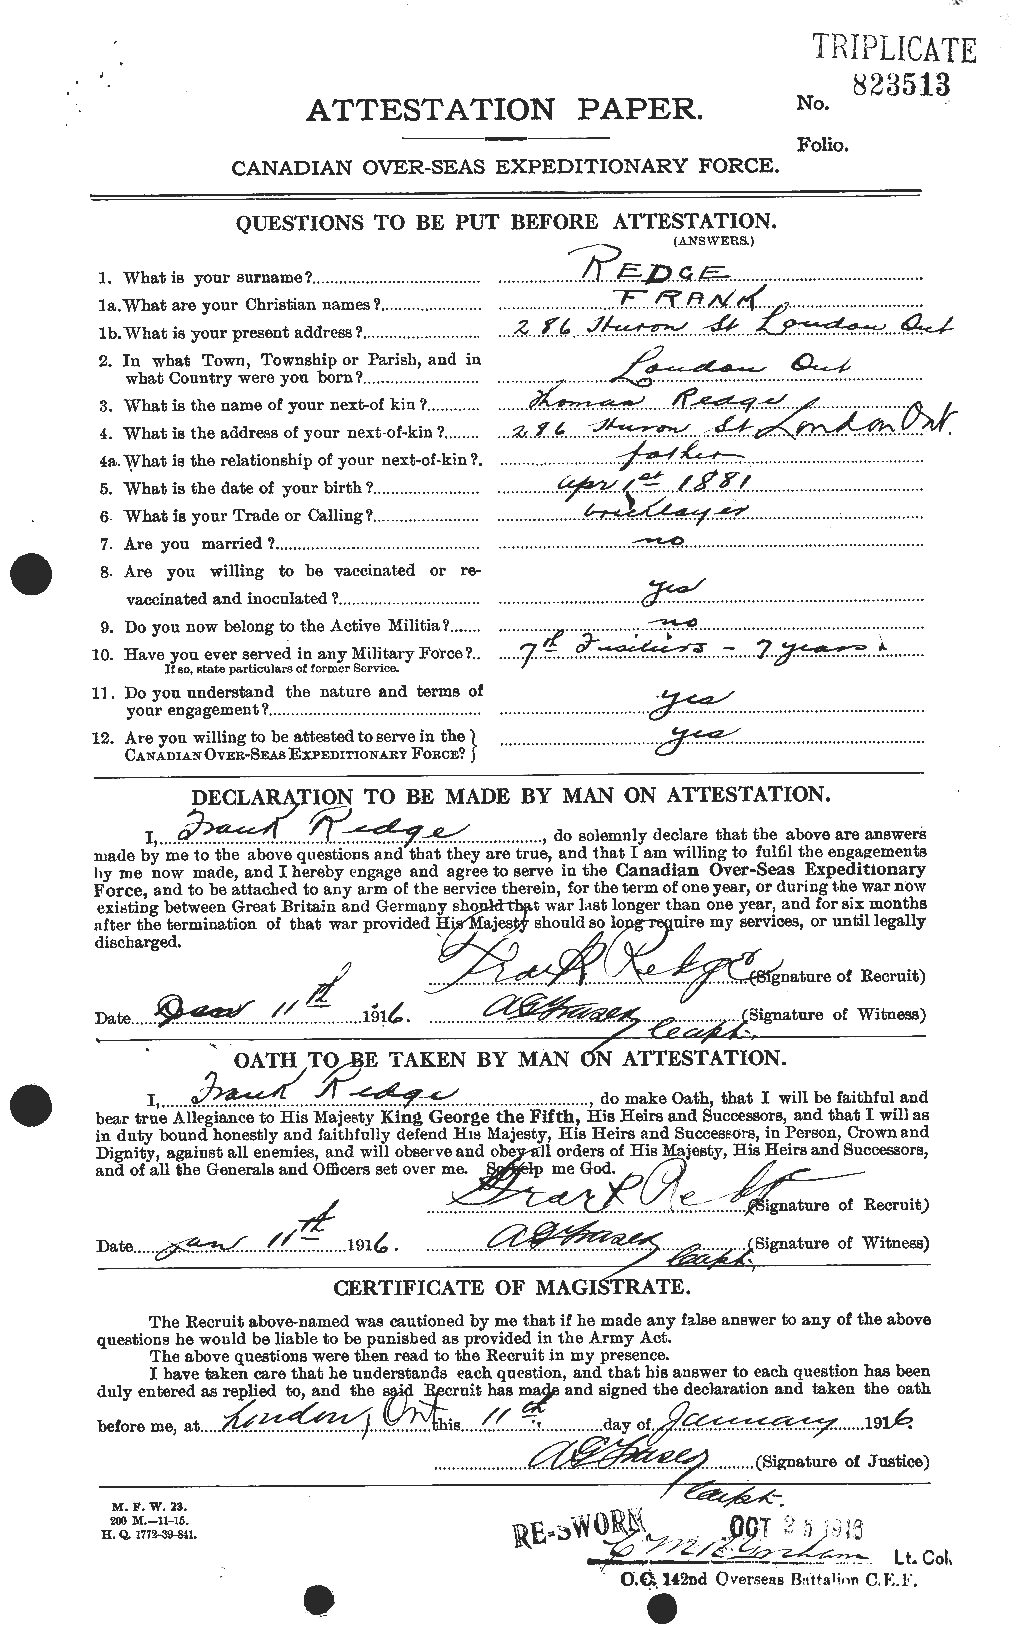 TRIPLICATE
No. 823513
ATTESTATION PAPER.
Folio.
CANADIAN OVER-SEAS EXPEDITIONARY FORCE.
QUESTIONS TO BE PUT BEFORE ATTESTATION.
(ANSWERS.)
1. What is your surname? REDGE
1a. What are your Christian names? FRANK
1b. What is your present address? 286 Huron St London Ont
2. In what Town, Township or Parish, and in
what Country were you born? London Ont
3. What is the name of your next-of kin? Thomas Redge
4. What is the address of your next-of-kin? 286 Huron St London Ont.
4a. What is the relationship of your next-of-kin? father
5. What is the date of your birth? Apr 1st 1881
6. What is your Trade or Calling? bricklayer
7. Are you married? no
8. Are you willing to be vaccinated or re-
vaccinated and inoculated? yes
9. Do you now belong to the Active Militia? no
10. Have you ever served in any Military Force? 7th Fusiliers - 7 years
If so, state particulars of former Service.
11. Do you understand the nature and terms of
your engagement? yes
12. Are you willing to be attested to serve in the } yes
CANADIAN OVER-SEAS EXPEDITIONARY FORCE? }
DECLARATION TO BE MADE BY MAN ON ATTESTATION.
I, Frank Redge, do solemnly declare that the above are answers
made by me to the above questions and that they are true, and that I am willing to fulfil the engagements
by me now made, and I hereby engage and agree to serve in the Canadian Over-Seas Expeditionary
Force, and to be attached to any arm of the service therein, for the term of one year, or during the war now
existing between Great Britain and Germany should that war last longer than one year, and for six months
after the termination of that war provided His Majesty should so long require my services, or until legally
discharged.
Frank Redge (Signature of Recruit)
Date Jan 11th 1916. A G Fraser Capt. (Signature of Witness)
OATH TO BE TAKEN BY MAN ON ATTESTATION.
I, Frank Redge, do make Oath, that I will be faithful and
bear true Allegiance to His Majesty King George the Fifth, His Heirs and Successors, and that I will as
in duty bound honestly and faithfully defend His Majesty, His Heirs and Successors, in Person, Crown and
Dignity, against all enemies, and will observe and obey all orders of His Majesty, His Heirs and Successors,
and of all the Generals and Officers set over me. So help me God.
Frank (Signature of Recruit)
Date Jan 11th 1916. A G Fraser Capt. (Signature of Witness)
CERTIFICATE OF MAGISTRATE.
The Recruit above-named was cautioned by me that if he made any false answer to any of the above
questions he would be liable to be punished as provided in the Army Act.
The above questions were then read to the Recruit in my presence.
I have taken care that he understands each question, and that his answer to each question has been
duly entered as replied to, and the said Recruit has made and signed the declaration and taken the oath
before me, at London, Ont this 11th day of January 1916.
A G Fraser (Signature of Justice)
Capt.
M. F. W. 23.
200 M.-11-15.
H. Q. 1772-39-841.
RE-SWORN OCT 25 1916
Lt. Col.
O.C. 142nd Overseas Battalion C.E.F.